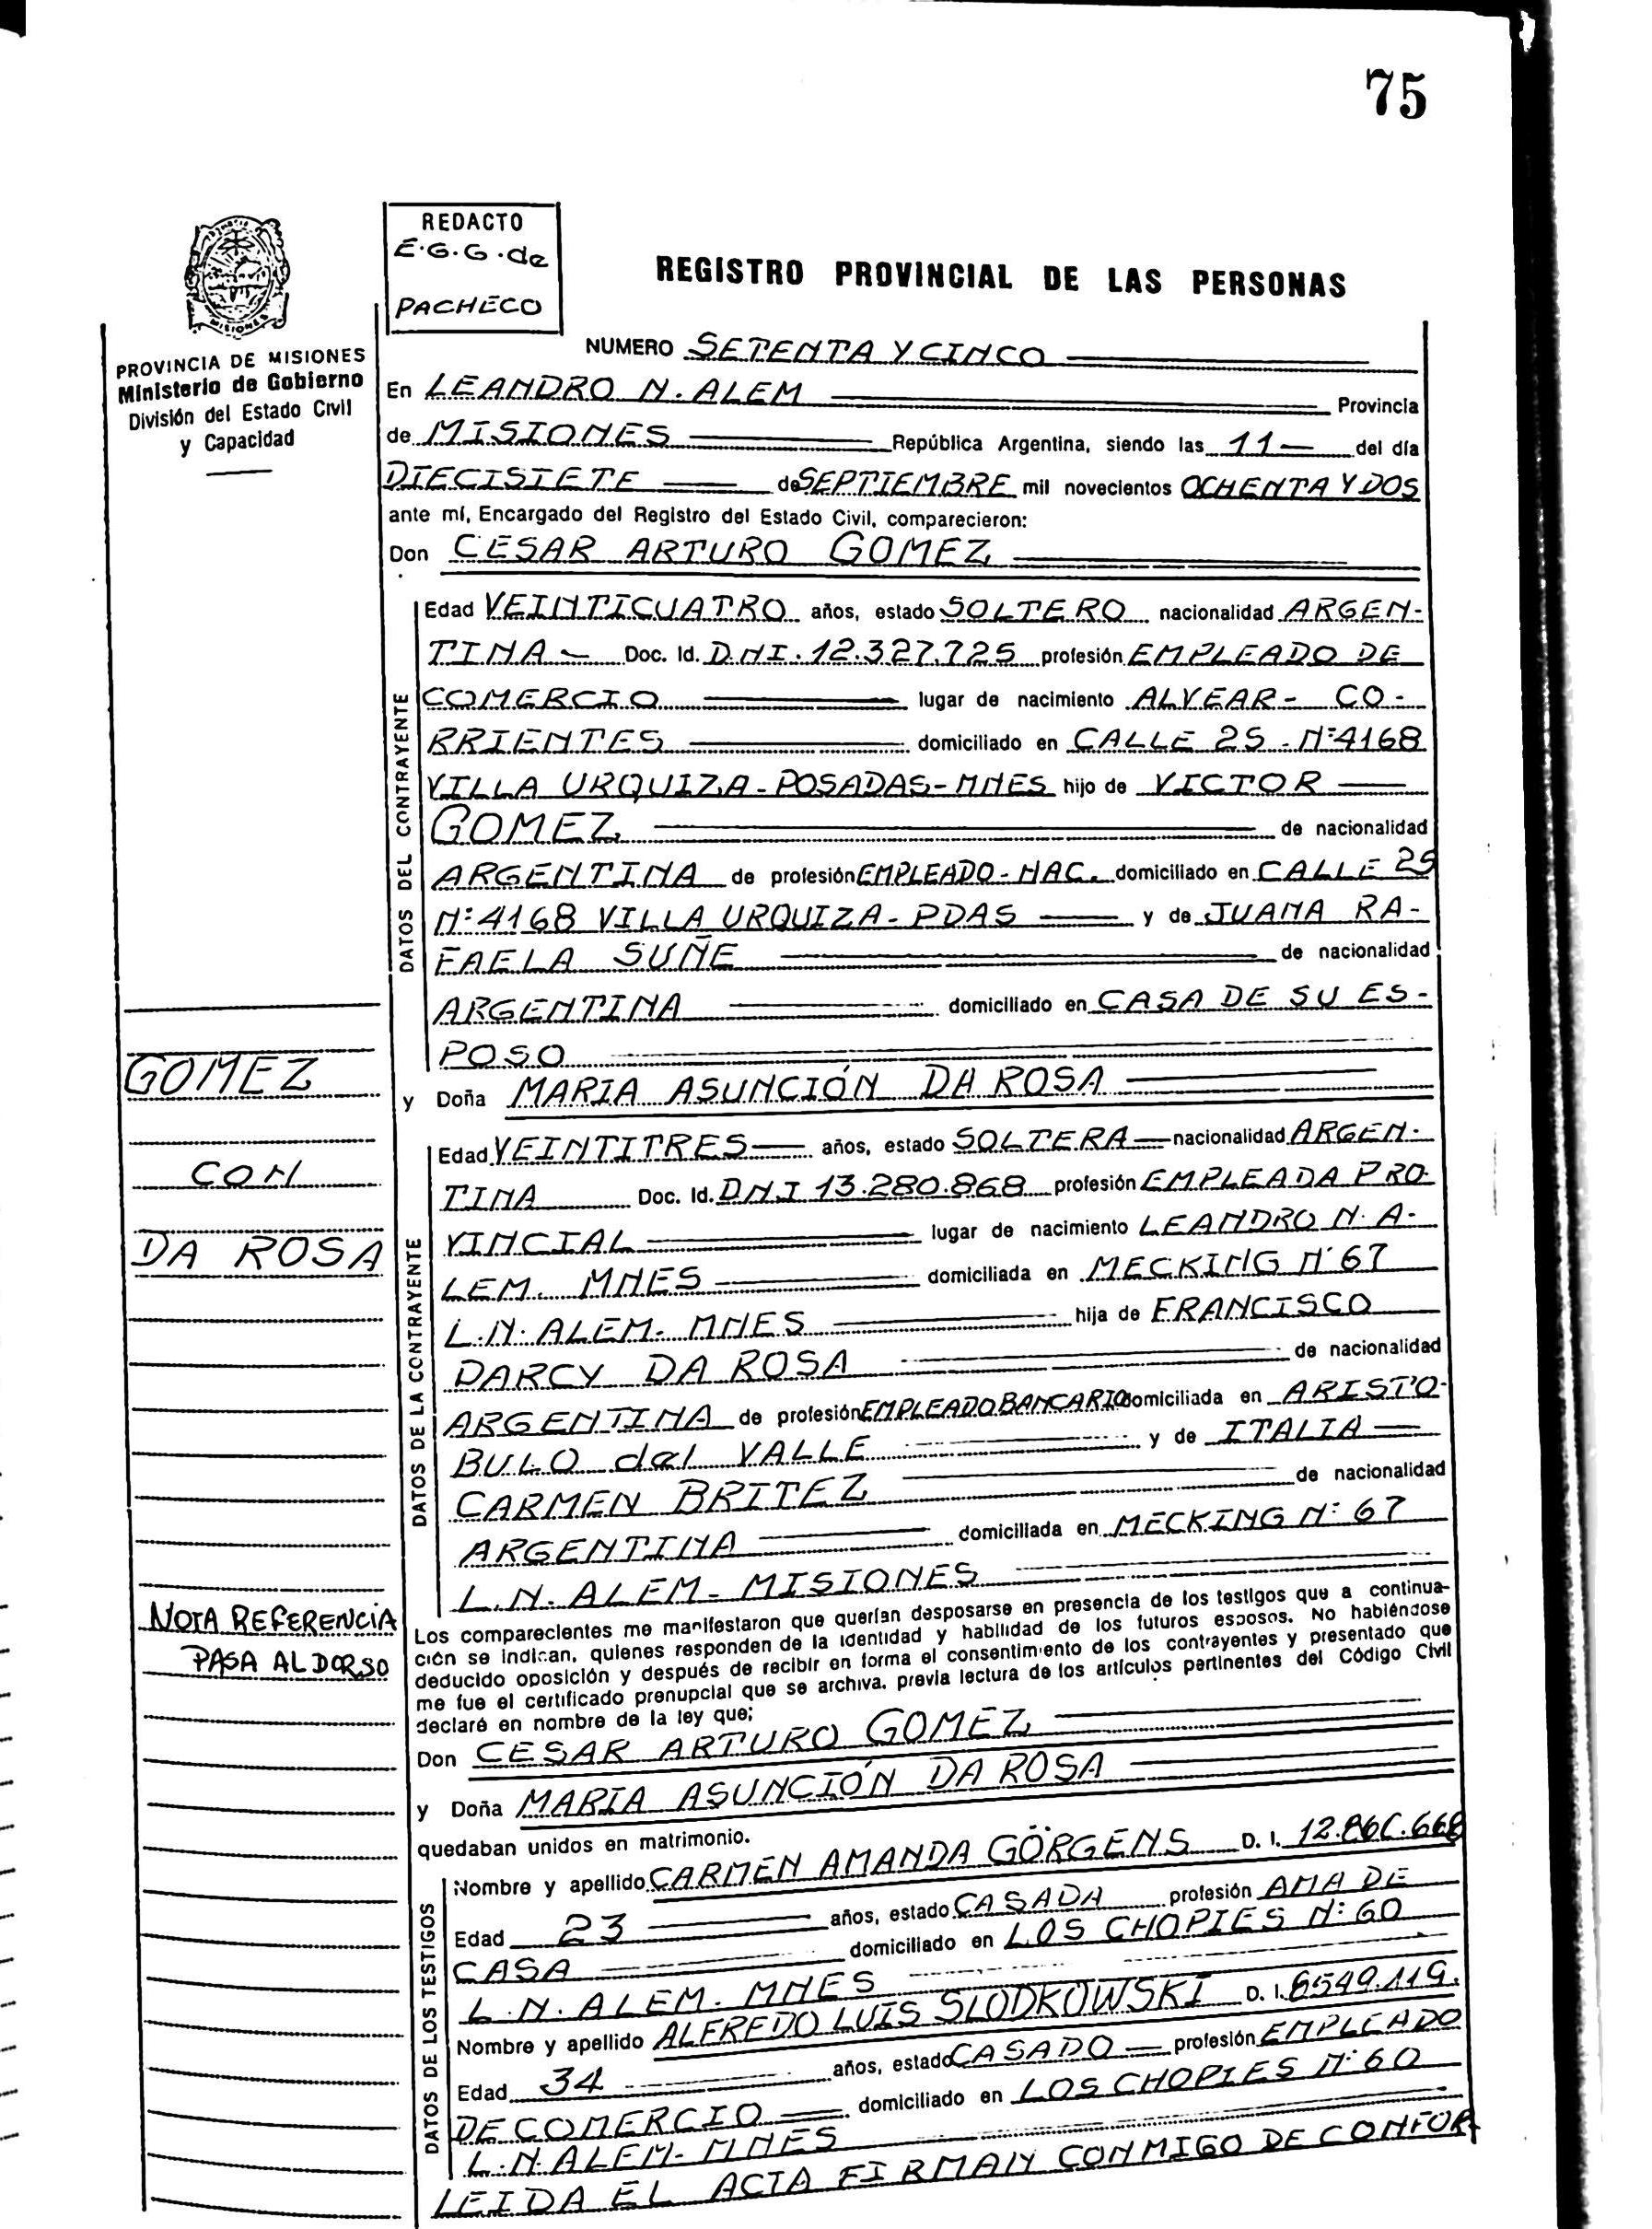 75
REDACTO
E.G.G. de
PACHECO
REGISTRO PROVINCIAL DE LAS PERSONAS
MISIONES
PROVINCIA DE MISIONES
Ministerio de Gobierno
División del Estado Civil
y Capacidad
NUMERO SETENTA Y CINCO
En LEANDRO N. ALEM Provincia
de MISIONES República Argentina, siendo las 11 del día
DIECISIETE de SEPTIEMBRE mil novecientos OCHENTA Y DOS
ante mí, Encargado del Registro del Estado Civil, comparecieron:
Don CESAR ARTURO GOMEZ
DATOS DEL CONTRAYENTE
Edad VEINTICUATRO años, estado SOLTERO nacionalidad ARGEN-
TINA - Doc. Id. D.N.I. 12.327.725 profesión EMPLEADO DE
COMERCIO lugar de nacimiento ALVEAR - CO-
RRIENTES domiciliado en CALLE 25 - N° 4168
VILLA URQUIZA - POSADAS - MNES hijo de VICTOR
GOMEZ de nacionalidad
ARGENTINA de profesión EMPLEADO - NAC. domiciliado en CALLE 25
N° 4168 VILLA URQUIZA - PDAS y de JUANA RA-
FAELA SUÑE de nacionalidad
ARGENTINA domiciliado en CASA DE SU ES-
POSO
y Doña MARIA ASUNCIÓN DA ROSA
GOMEZ
CON
DA ROSA
DATOS DE LA CONTRAYENTE
Edad VEINTITRES años, estado SOLTERA nacionalidad ARGEN-
TINA Doc. Id. DNI 13.280.868 profesión EMPLEADA PRO-
VINCIAL lugar de nacimiento LEANDRO N. A-
LEM. MNES domiciliada en MECKING N° 67
L.N. ALEM - MNES hija de FRANCISCO
DARCY DA ROSA de nacionalidad
ARGENTINA de profesión EMPLEADO BANCARIO domiciliada en ARISTO-
BULO del VALLE y de ITALIA
CARMEN BRITEZ de nacionalidad
ARGENTINA domiciliada en MECKING N° 67
L.N. ALEM - MISIONES
NOTA REFERENCIA
PASA AL DORSO
Los comparecientes me manifestaron que querían desposarse en presencia de los testigos que a continua-
ción se indican, quienes responden de la identidad y habilidad de los futuros esposos. No habiéndose
deducido oposición y después de recibir en forma el consentimiento de los contrayentes y presentado que
me fue el certificado prenupcial que se archiva, previa lectura de los artículos pertinentes del Código Civil
declaré en nombre de la ley que;
Don CESAR ARTURO GOMEZ
y Doña MARIA ASUNCIÓN DA ROSA
quedaban unidos en matrimonio.
DATOS DE LOS TESTIGOS
Nombre y apellido CARMEN AMANDA GÖRGENS D. I.
Edad 23 años, estado CASADA profesión AMA DE
CASA domiciliado en LOS CHOPIES N° 60
L.N. ALEM - MNES
Nombre y apellido ALFREDO LUIS SLODKOWSKI D. I.
Edad 34 años, estado CASADO profesión EMPLEADO
DE COMERCIO domiciliado en LOS CHOPIES N° 60
L.N. ALEM - MNES
LEIDA EL ACTA FIRMAN CONMIGO DE CONFOR-